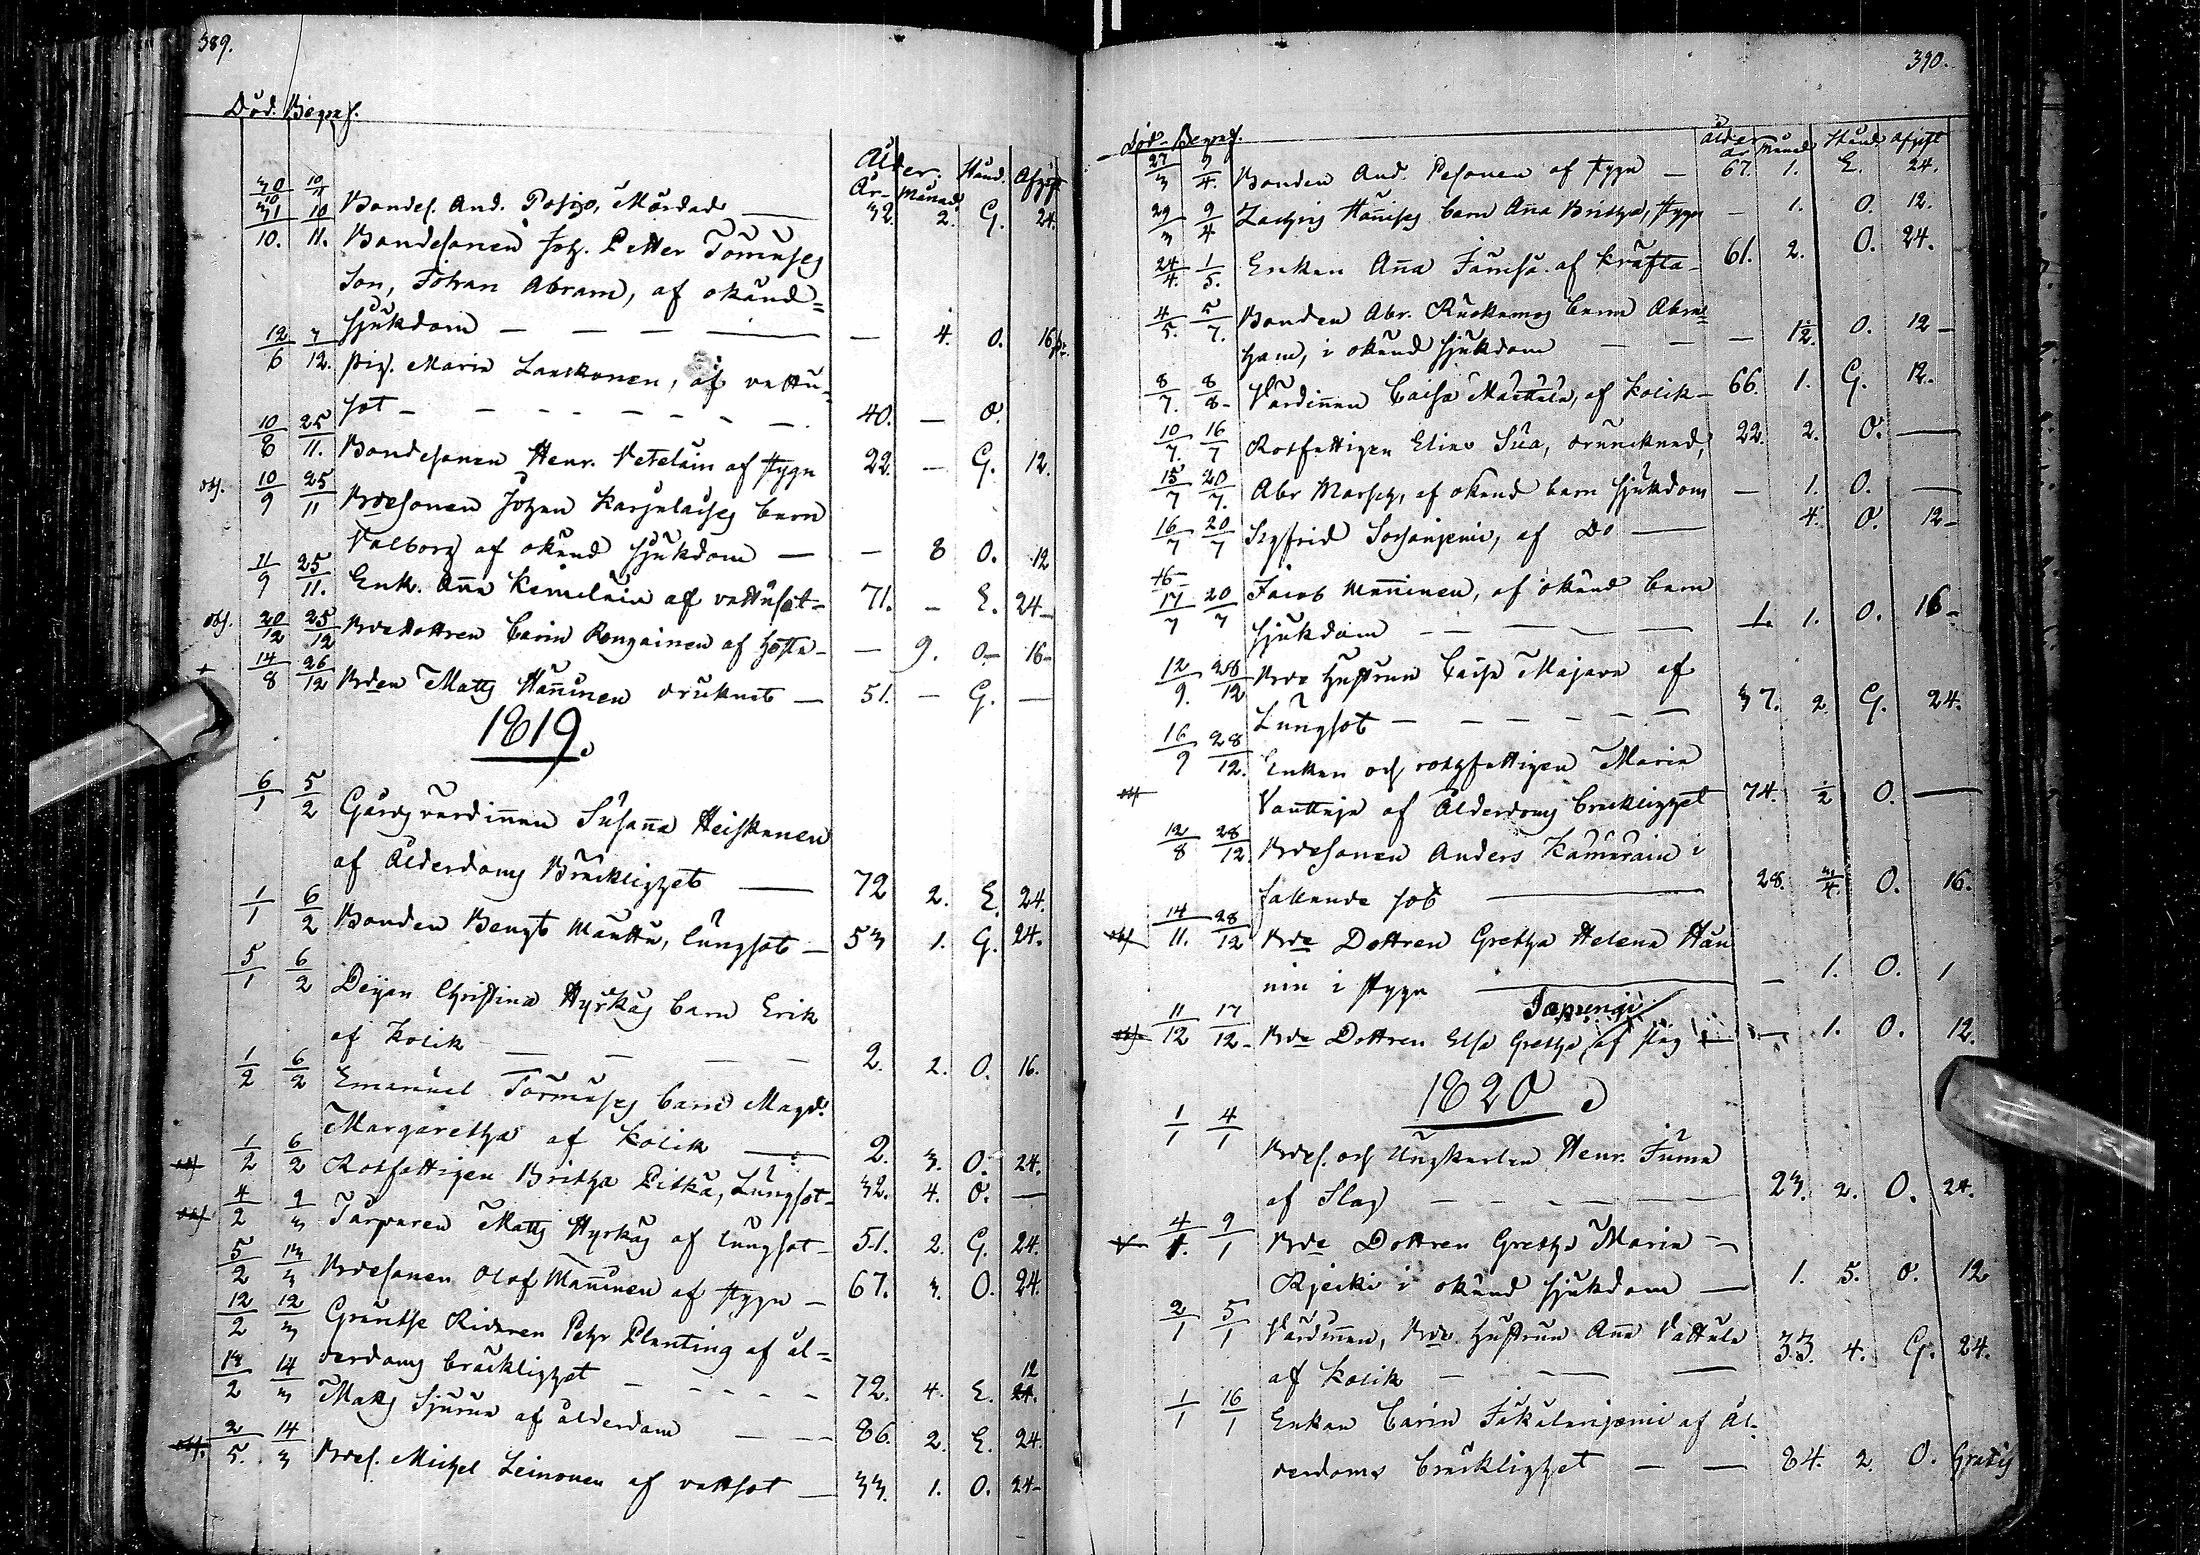 389.
Död. Begraf.
Ålder. Stånd. Afgift
År- Månad.
30/10 10/11 Bondes. And. Posio, Mördad — 32. 2. G. 24.
31/10. 10/11. Bondesonen Joh. Petter Tornuses
Son, Johan Abram, af okänd=
sjukdom — — — — — 4. O. 16
12/6 7/12. pig. Maria Laukkanen, af vattu-
sot — 40. — O.
10/8 25/11. Bondesonen Henr. Vetelain af stygn 22. — G. 12.
obs. 10/9 25/11 Brdesonen Johan Karjalaises barn
Valborg af okänd sjukdom — — 8 O. 12
11/9 25/11. Enk. Anna Kemilain af vattusot- 71. — E. 24-
obs. 20/12 25/12 Brdedottren Carin Rongainen af hosta- — 9. O- 16-
+ 14/8 26/12 Brden Matts Hanninen druknat — 51. — G. —
1819.
6/1 5/2 Gårdsvärdinnan Susanna Heiskanen
af Ålderdoms Bräcklighet — 72 2. E. 24.
1/1 6/2 Bonden Bengt Manttu, lungsot — 53 1. G. 24.
5/1 6/2 Pigan Christina Hyrkäs barn Erik
af kolik — — — 2. 2. O. 16.
1/2 6/2 Emanuel Tormuses barn Magd.
Margaretha af kolik — 2. 3. O. 24.
obs 1/2 6/2 Rotfattigen Britha Pitkä, Lungsot- 32. 4. O. —
obs 4/2 9/3 Torparen Matts Hyrkäs af lungsot- 51. 2. G. 24.
5/2 13/3 Brdesonen Olof Manninen af stygn — 67. 3. O. 24.
12/2 12/3 Gräntse Ridaren Petr Planting af ål=
derdoms bräcklighet — — — — — 72. 4. E. 12 24.
18/2 14/3 Matts Sjurun af ålderdom — — — 86. 2. E. 24.
obs. 2/5. 14/3 Brdes. Michel Leinonen af vattsot — 33. 1. O. 24-
390.
Död- Begraf.
Ålder Stånd Afgift
År Månad
27/3 7/4. Bonden And. Pesonen af stygn — 67. 1. E. 24.
29/3 9/4 Zachris Hännises barn Anna Britha, stygn — 1. O. 12.
24/4. 1/5. Enkan Anna Jämsä. af kräfta- 61. 2. O. 24.
4/5. 5/7. Bonden Abr. Ruokamos barn Abra=
ham, i okänd sjukdom — — — 1½. O. 12 —
8/7. 8/8- Värdinnan Caisa Mattila, af kolik- 66. 1. G. 12.
10/7. 16/7 Rotfattigen Elias Sua, drunknad, 22. 2. O. —
15/7 20/7. Abr Marsch, af okänd barn sjukdom — 1. O. —
16/7 20/7 Sigfrid Sorsanjemi, af Do — 4. O. 12-
17/7 20/7 Jacob Manninen, af okänd barn
sjukdom — — — — 1. 1. O. 16-
12/9. 28/12 Brde hustrun Caisa Majava af
Lungsot — — — — — 37. 2. G. 24.
16/9 28/12. Enkan och rotefattigen Maria
obs Vanttaja af Ålderdoms bräcklighet 74. ½ O. —
12/8 28/12 Brdesonen Anders Kämäräin i
fallande sot — 28. ¾. O. 16.
obs 14/11. 28/12 Brde Dottren Gretha Helena Hän
nin i stygn — — 1. O. 1
Sapungi
obs. 11/12 17/12- Brde Dottren Elsa Gretha af slag — — 1. O. 12.
1820
1/1 4/1 Brdes. och Ungkarlen Henr. Juma
af Slag — — — — — 23. 2. O. 24.
4/1. 9/1 Brde Dottren Gretha Maria —
Rjeicki i okänd sjukdom — 1. 5. O. 12
2/1 5/1 Värdinnan, Brde Hustrun Anna Vattula
af kolik — — — 33. 4. G. 24.
1/1 16/1 Enkan Carin Jäkälaniemi af Ål-
derdoms bräcklighet — — 84. 2. O. Gratis